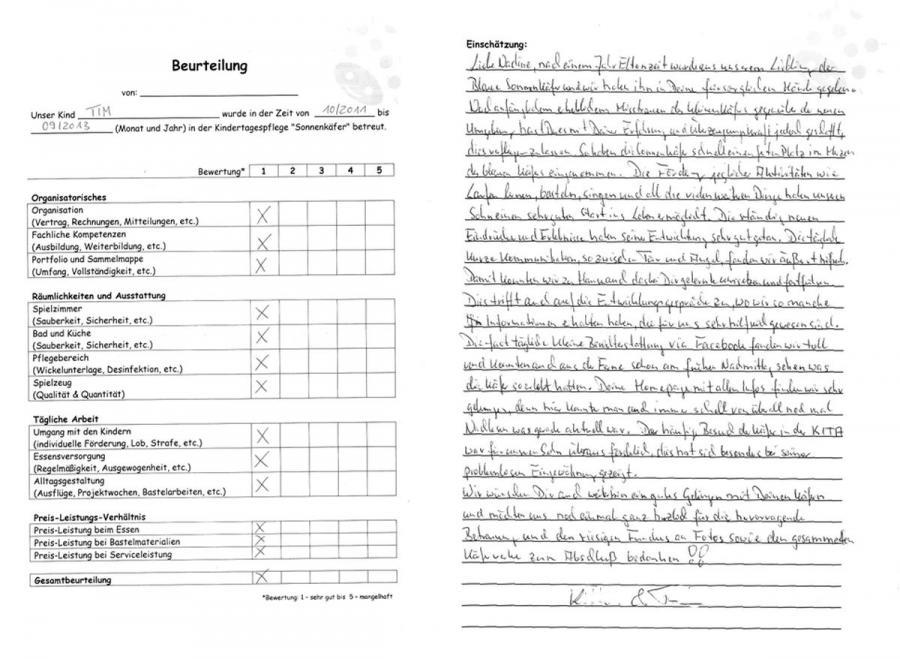 Beurteilung
von:
Unser Kind TIM wurde in der Zeit von 10/2011 bis
09/2013 (Monat und Jahr) in der Kindertagespflege "Sonnenkäfer" betreut.
Bewertung* 1 2 3 4 5
Organisatorisches
Organisation
(Vertrag, Rechnungen, Mitteilungen, etc.) X
Fachliche Kompetenzen
(Ausbildung, Weiterbildung, etc.) X
Portfolio und Sammelmappe
(Umfang, Vollständigkeit, etc.) X
Räumlichkeiten und Ausstattung
Spielzimmer
(Sauberkeit, Sicherheit, etc.) X
Bad und Küche
(Sauberkeit, Sicherheit, etc.) X
Pflegebereich
(Wickelunterlage, Desinfektion, etc.) X
Spielzeug
(Qualität & Quantität) X
Tägliche Arbeit
Umgang mit den Kindern
(individuelle Förderung, Lob, Strafe, etc.) X
Essensversorgung
(Regelmäßigkeit, Ausgewogenheit, etc.) X
Alltagsgestaltung
(Ausflüge, Projektwochen, Bastelarbeiten, etc.) X
Preis-Leistungs-Verhältnis
Preis-Leistung beim Essen X
Preis-Leistung bei Bastelmaterialien X
Preis-Leistung bei Serviceleistung X
Gesamtbeurteilung X
*Bewertung: 1 - sehr gut bis 5 - mangelhaft
Einschätzung:
Liebe Nadine, nach einem Jahr Elternzeit wurde aus unserem Liebling der
Blaue Sonnenkäfer und wir haben ihn in Deine fürsorglichen Hände gegeben.
Nach anfänglichem erheblichem Misstrauen des kleinen Käfers gegenüber der neuen
Umgebung, hast Du es mit Deiner Erfahrung und Überzeugungskraft jedoch geschafft,
dies verfliegen zu lassen. So haben die Sonnenkäfer schnell einen festen Platz im Herzen
des blauen Käfers eingenommen. Die Förderung jeglicher Aktivitäten wie
Laufen lernen, basteln, singen und all die vielen weiteren Dinge haben unserem
Sohn einen sehr guten Start ins Leben ermöglicht. Die ständig neuen
Eindrücke und Erlebnisse haben seine Entwicklung sehr gut getan. Die tägliche
kurze Kommunikation, so zwischen Tür und Angel, fanden wir äußerst hilfreich.
Damit konnten wir zu Hause auch das bei Dir gelernte umsetzen und fortführen.
Dies trifft auch auf die Entwicklungsgespräche zu, wo wir so manche
Informationen erhalten haben, die für uns sehr hilfreich gewesen sind.
Die fast tägliche kleine Berichterstattung via Facebook fanden wir toll
und konnten auch aus der Ferne schon am frühen Nachmittag sehen was
die Käfer so erlebt hatten. Deine Homepage mit allen Infos finden wir sehr
gelungen, denn hier konnte man auch immer schnell von überall noch mal
Nachlesen was gerade aktuell war. Der häufige Besuch der Käfer in der KITA
war für unseren Sohn überaus förderlich, dies hat sich besonders bei seiner
problemlosen Eingewöhnung gezeigt.
Wir wünschen Dir auch weiterhin ein gutes Gelingen mit Deinen Käfern
und möchten uns noch einmal ganz herzlich für die hervorragende
Betreuung und den riesigen Fundus an Fotos sowie den gesammelten
zum Abschluß bedanken !!